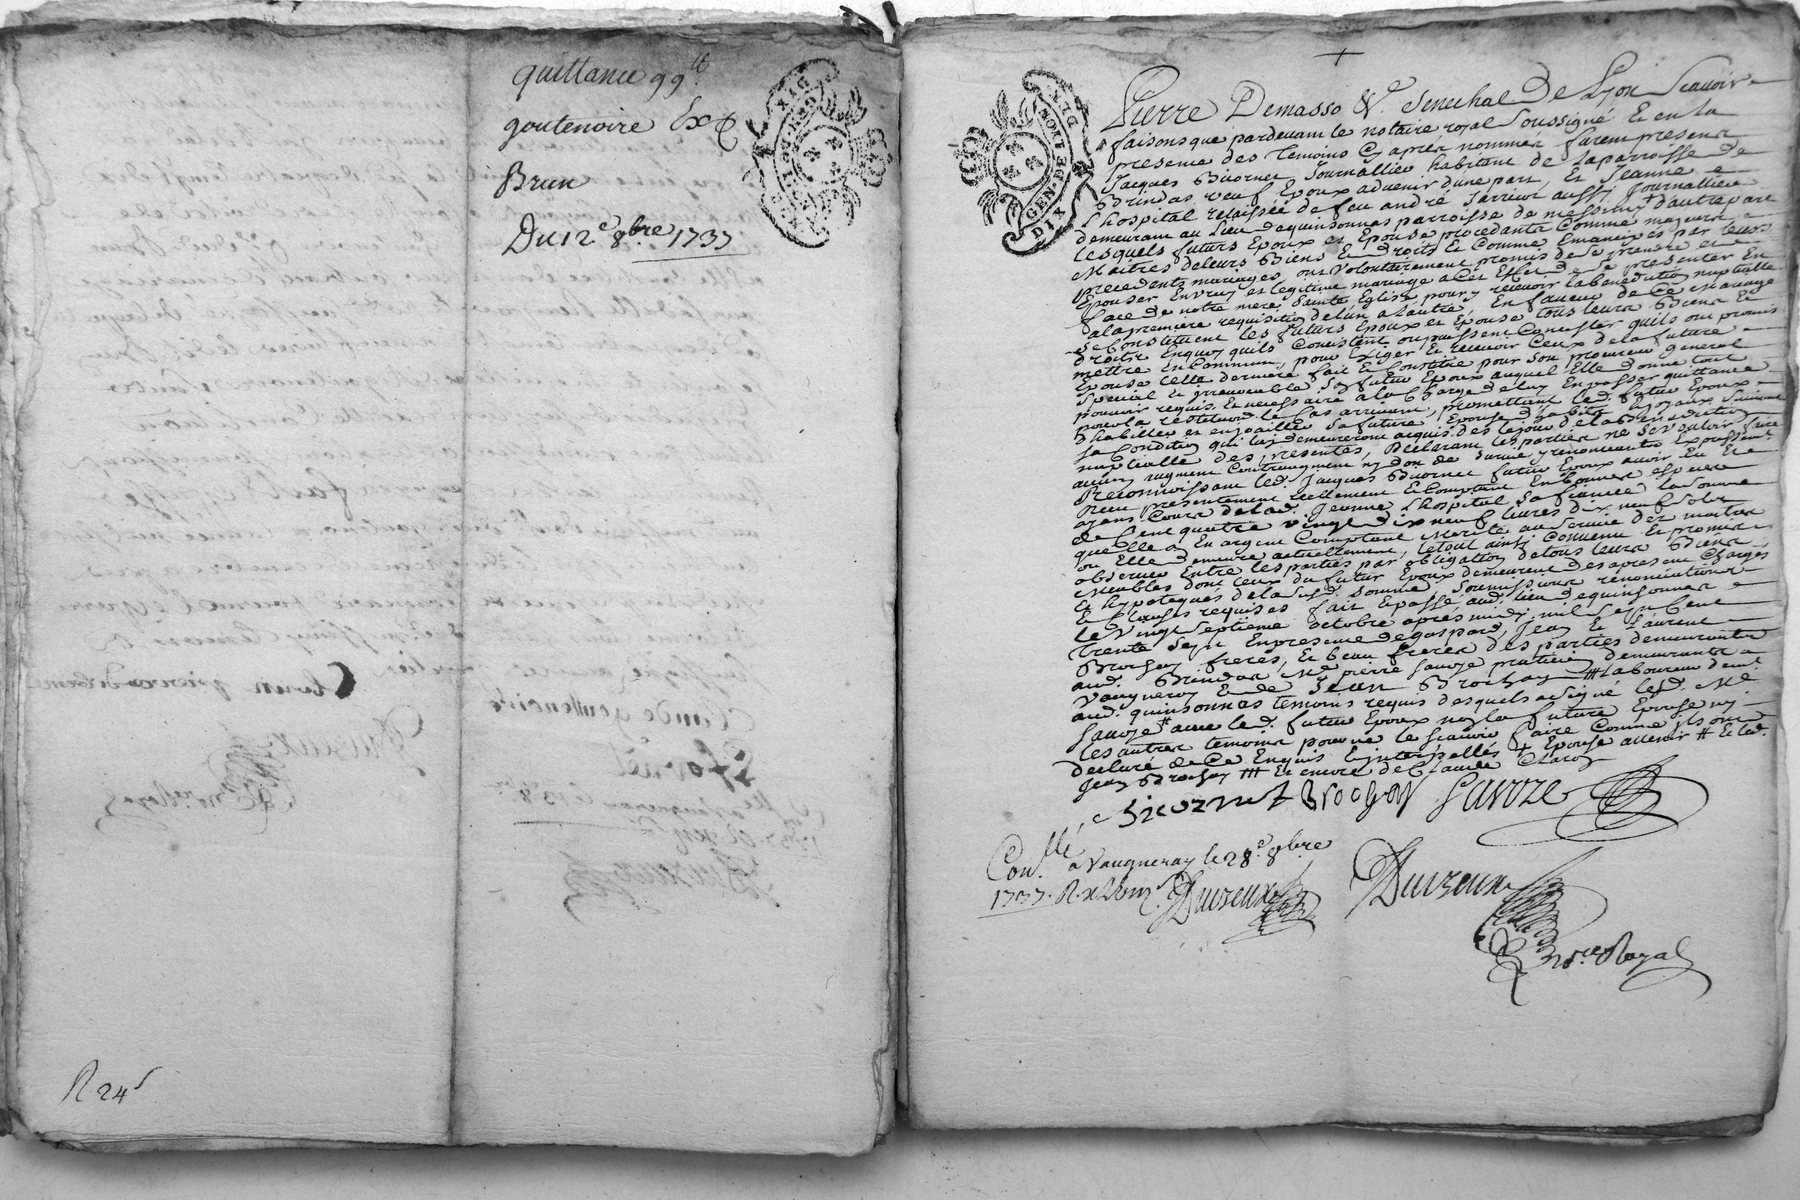 quittance 99ᵗᵗ
goutenoire
Brun
Du 12ᵉ 8bre 1737
R 24ˢ
GEN. DE LYON
DIX
Pierre Demasso &ᵃ Senechal de Lyon Scavoir
faisons que pardevant le notaire royal soussigné et en la
presence des temoins cy apres nommez furent presents
Jacques Bicornet Journallier habitant de la parroisse de
Brindas veuf Epoux advenir d'une part Et Jeanne
L'hospital relaissée de feu andré aussy Journalliere
demeurant au lieu de quinsonnas parroisse de messimy d'autre part
Lesquels futurs Epoux et Epouse procedants comme majeurs
Maitres de leurs Biens Et droits Et comme Emancipés par leurs
precedents mariages, ont volontairement promis de se prendre et
Epouser En vray et legitime mariage a cet Effet de se presenter En
face de notre mere Sainte Eglise pour y recevoir la benediction nuptialle
a la premiere requisition de l'un a l'autre, En faveur de ce mariage
se Constituent les futurs Epoux et Epouse tous leurs Biens Et
droits En quoy quils Consistent ou puissent Consister quils ont promis
mettre En Commun, pour Exiger Et recevoir Ceux de la future
Epouse Celle derniere fait Et Constitue pour son procureur general
Special Et irrevocable Sond. futur Epoux auquel Elle donne tout
pouvoir requis Et necessaire a la Charge de luy En passer quittance
pour la restitution le Cas arrivant, promettant led. futur Epoux
d'habiller et enjoailler sa future Epouse d'habits Et joyaux suivant
sa Condition qui luy demeureront acquis des le jour de la Benediction
nuptialle des presentes, Declarant les parties ne se vouloir faire
aucun augment Contraugment ny don de survie y renonceants Expressement
Reconnoissant led. Jacques Bicornet futur Epoux avoir Eu Et
receu presentement reellement Et Comptant En bonnes especes
ayans Cours de lad. Jeanne L'hospital sa fiancée la somme
de Cent quatre vingt dix neuf livres dix neuf sols
que Elle a En argent Comptant Merité au service des maitres
ou Elle demeure actuellement, le tout ainsy Convenu Et promis
observer Entre les parties par obligation de tous leurs Biens
Meubles dont Ceux du futur Epoux demeurent des apresent Charges
Et hypoteques de la susd. somme, soumissions renonciations
Et Clauses requises fait Et passé aud. lieu de quinsonnas
le vingt septieme octobre apres midy mil sept Cent
trente sept En presence de gaspard, Jean Et Laurent
Brochay freres, Et beau freres des parties demeurants
aud. Brindas Mᵉ pierre Savoze praticien demeurant a
Vaugneray Et de Jean Brochay ## laboureur demt
aud. quinsonnas temoins requis desquels a signé led. Mᵉ
Savoze # avec led. futur Epoux non la future Epouse ny
les autres temoins pour ne le scavoir faire Comme ils ont
declaré de Ce Enquis Et interpellés + Epouse advenir # Et led.
Jean Brochay ## Et encore de Claude
Bicornet Brochay Savoze
Conllé à Vaugneray le 28ᵉ 8bre
1737. R. Duvzeux
Duvzeux
noʳᵉ Royal